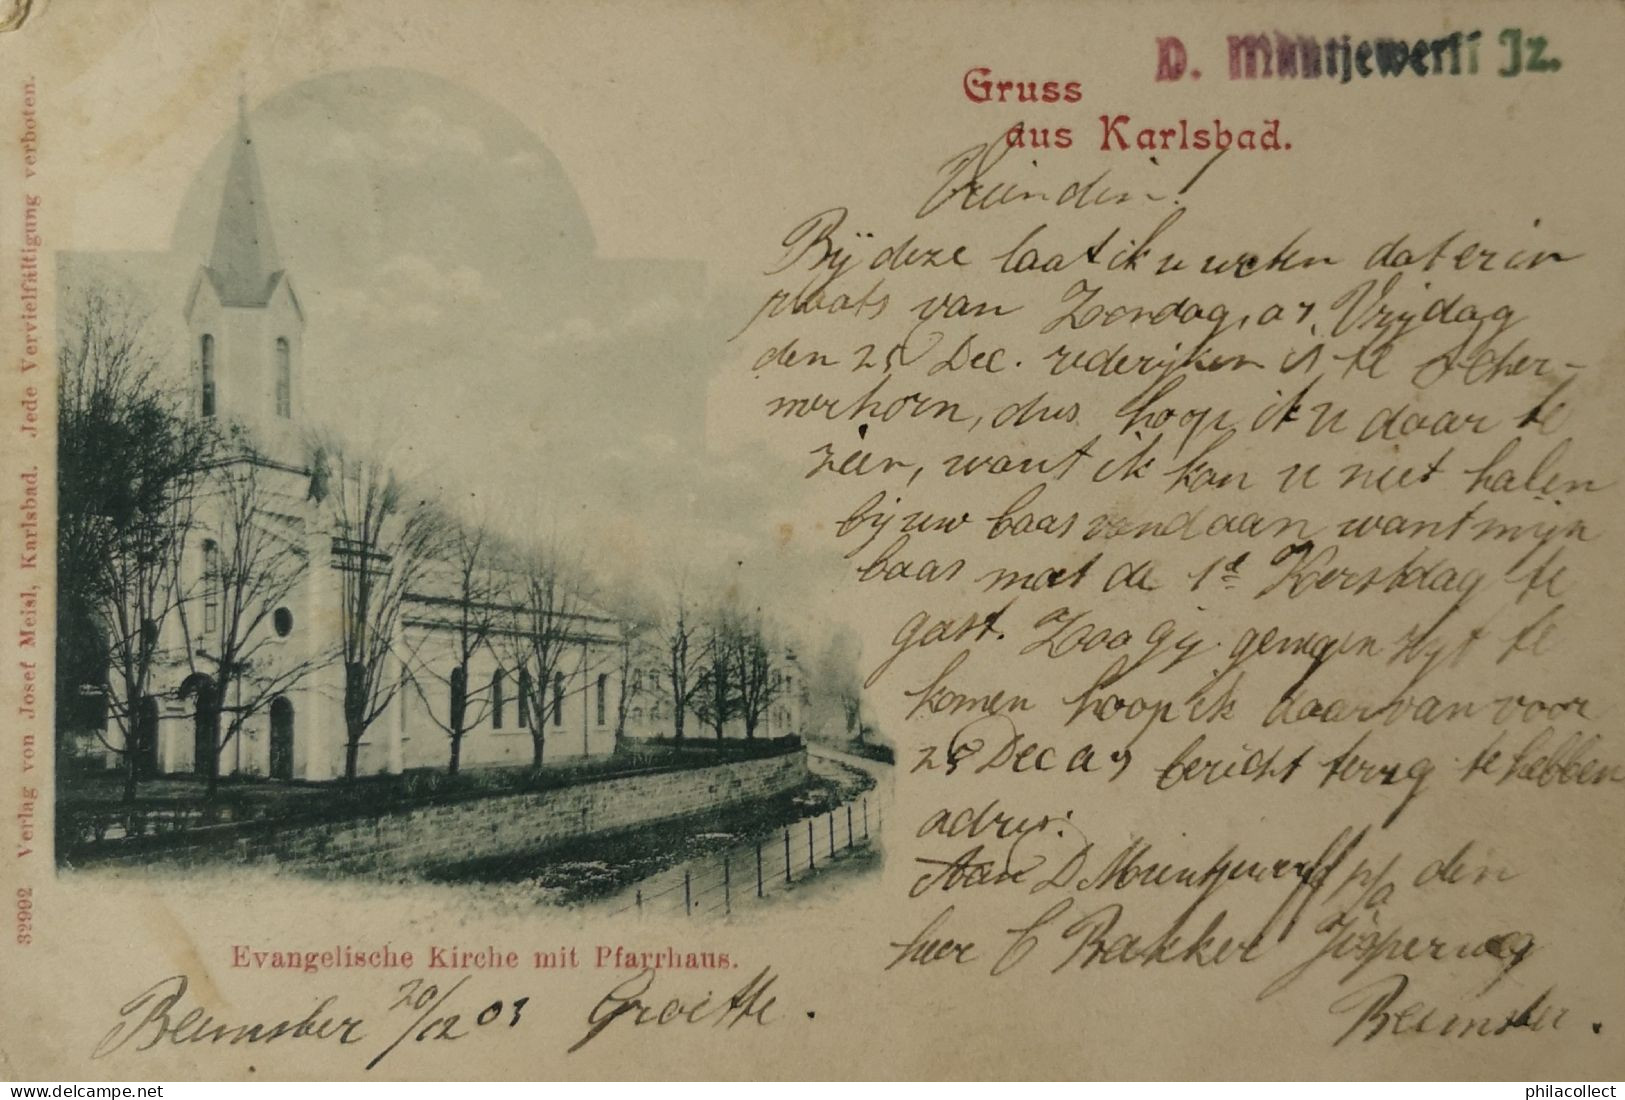 D. Muntjewerff Jz.
Gruss
aus Karlsbad.
Vriendin!
Bij deze laat ik u weten dat er in
plaats van Zondag, as, Vrijdag
den 25 Dec. rederijken is te Scher-
merhorn, dus hoop ik u daar te
zien, want ik kan u niet halen
bij uw baas vandaan want mijn
baas met de 1e Kerstdag te
gast. Zoo gij genegen zijt te
komen hoop ik daarvan voor
25 Dec as bericht terug te hebben
adres:
Aan D Muntjewerff p/a den
heer C Bakker Jisperweg
Beemster.
Beemster 20/12 03 Groette.
Evangelische Kirche mit Pfarrhaus.
32992 Verlag von Josef Meisl, Karlsbad. Jede Vervielfältigung verboten.
philacollect